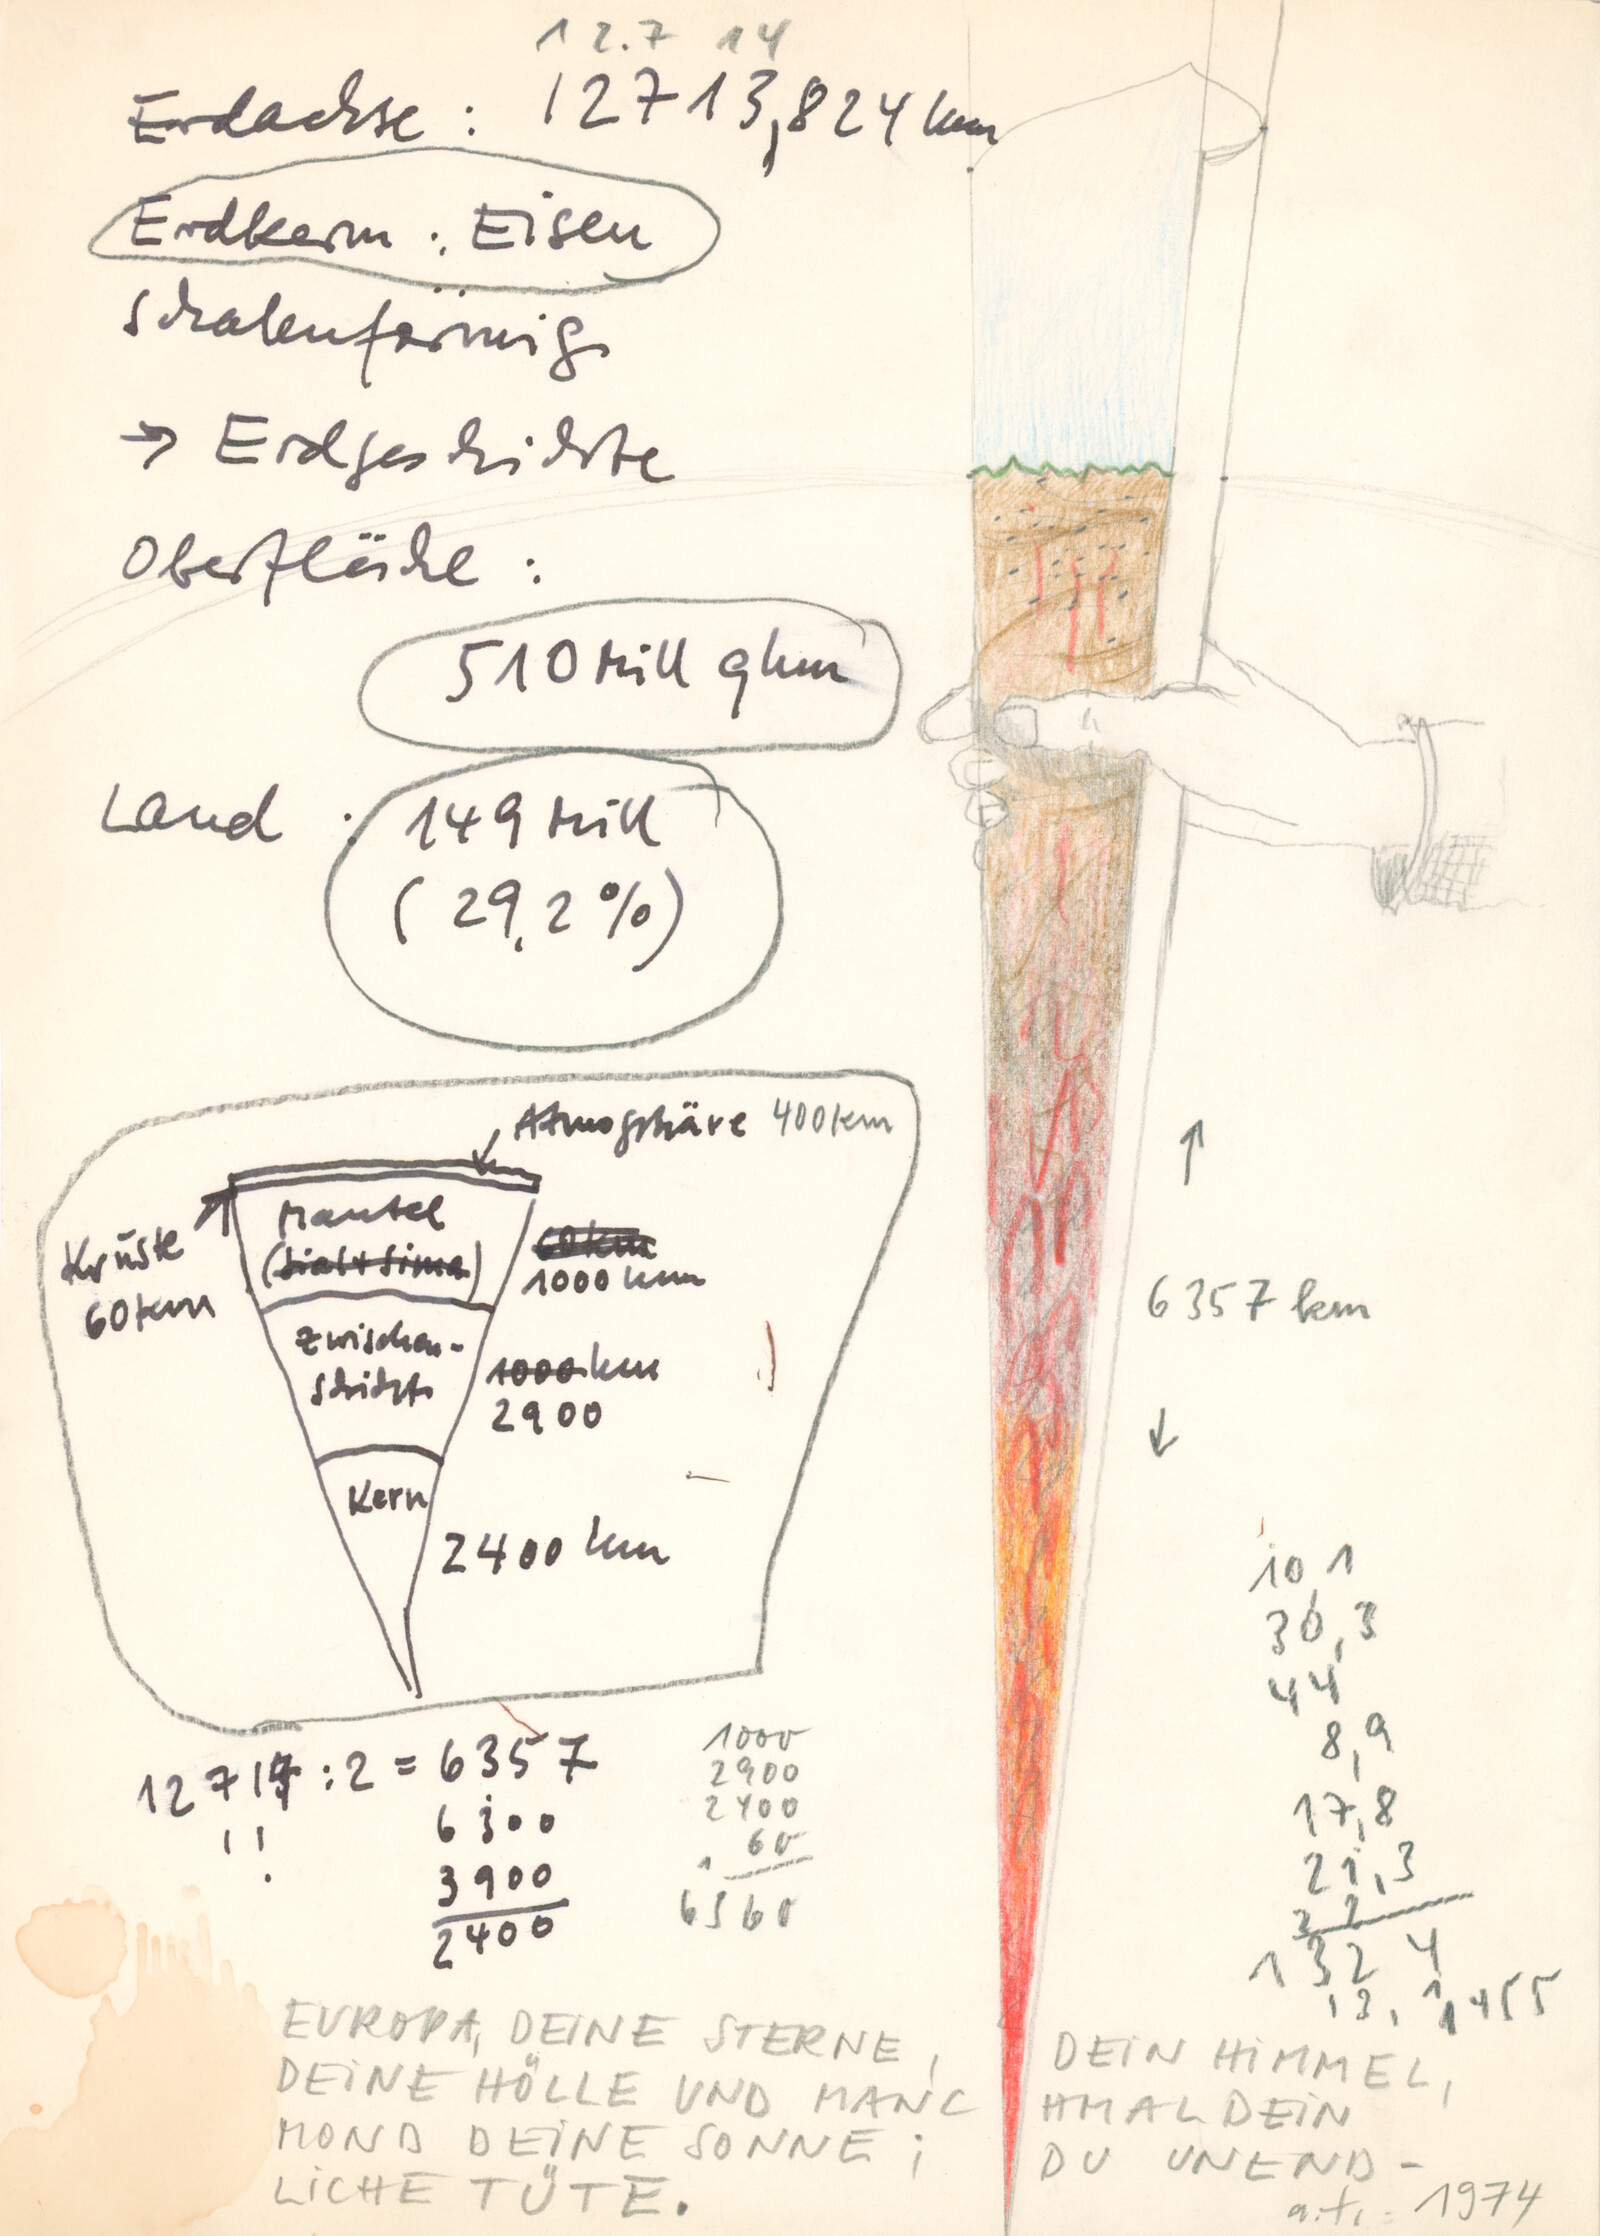 12.7 14
Erdachse : 12713,824 km
Erdkern : Eisen
Schalenförmig
→ Erdgeschichte
Oberfläche :
510 Mill qkm
Land : 149 Mill
(29,2%)
Atmosphäre 400km
Kruste
60km
Mantel
(Sial+Sima)
60km
1000 km
Zwischen-
schicht
1000 km
2900
Kern
2400 km
6357 km
12714 : 2 = 6357
6300
3900
2400
1000
2900
2400
60
6360
10,1
30,3
44
8,9
17,8
21,3
132 4
EUROPA, DEINE STERNE, DEIN HIMMEL,
DEINE HÖLLE UND MANCHMAL DEIN
MOND DEINE SONNE; DU UNEND-
LICHE TÜTE.
a.t. 1974